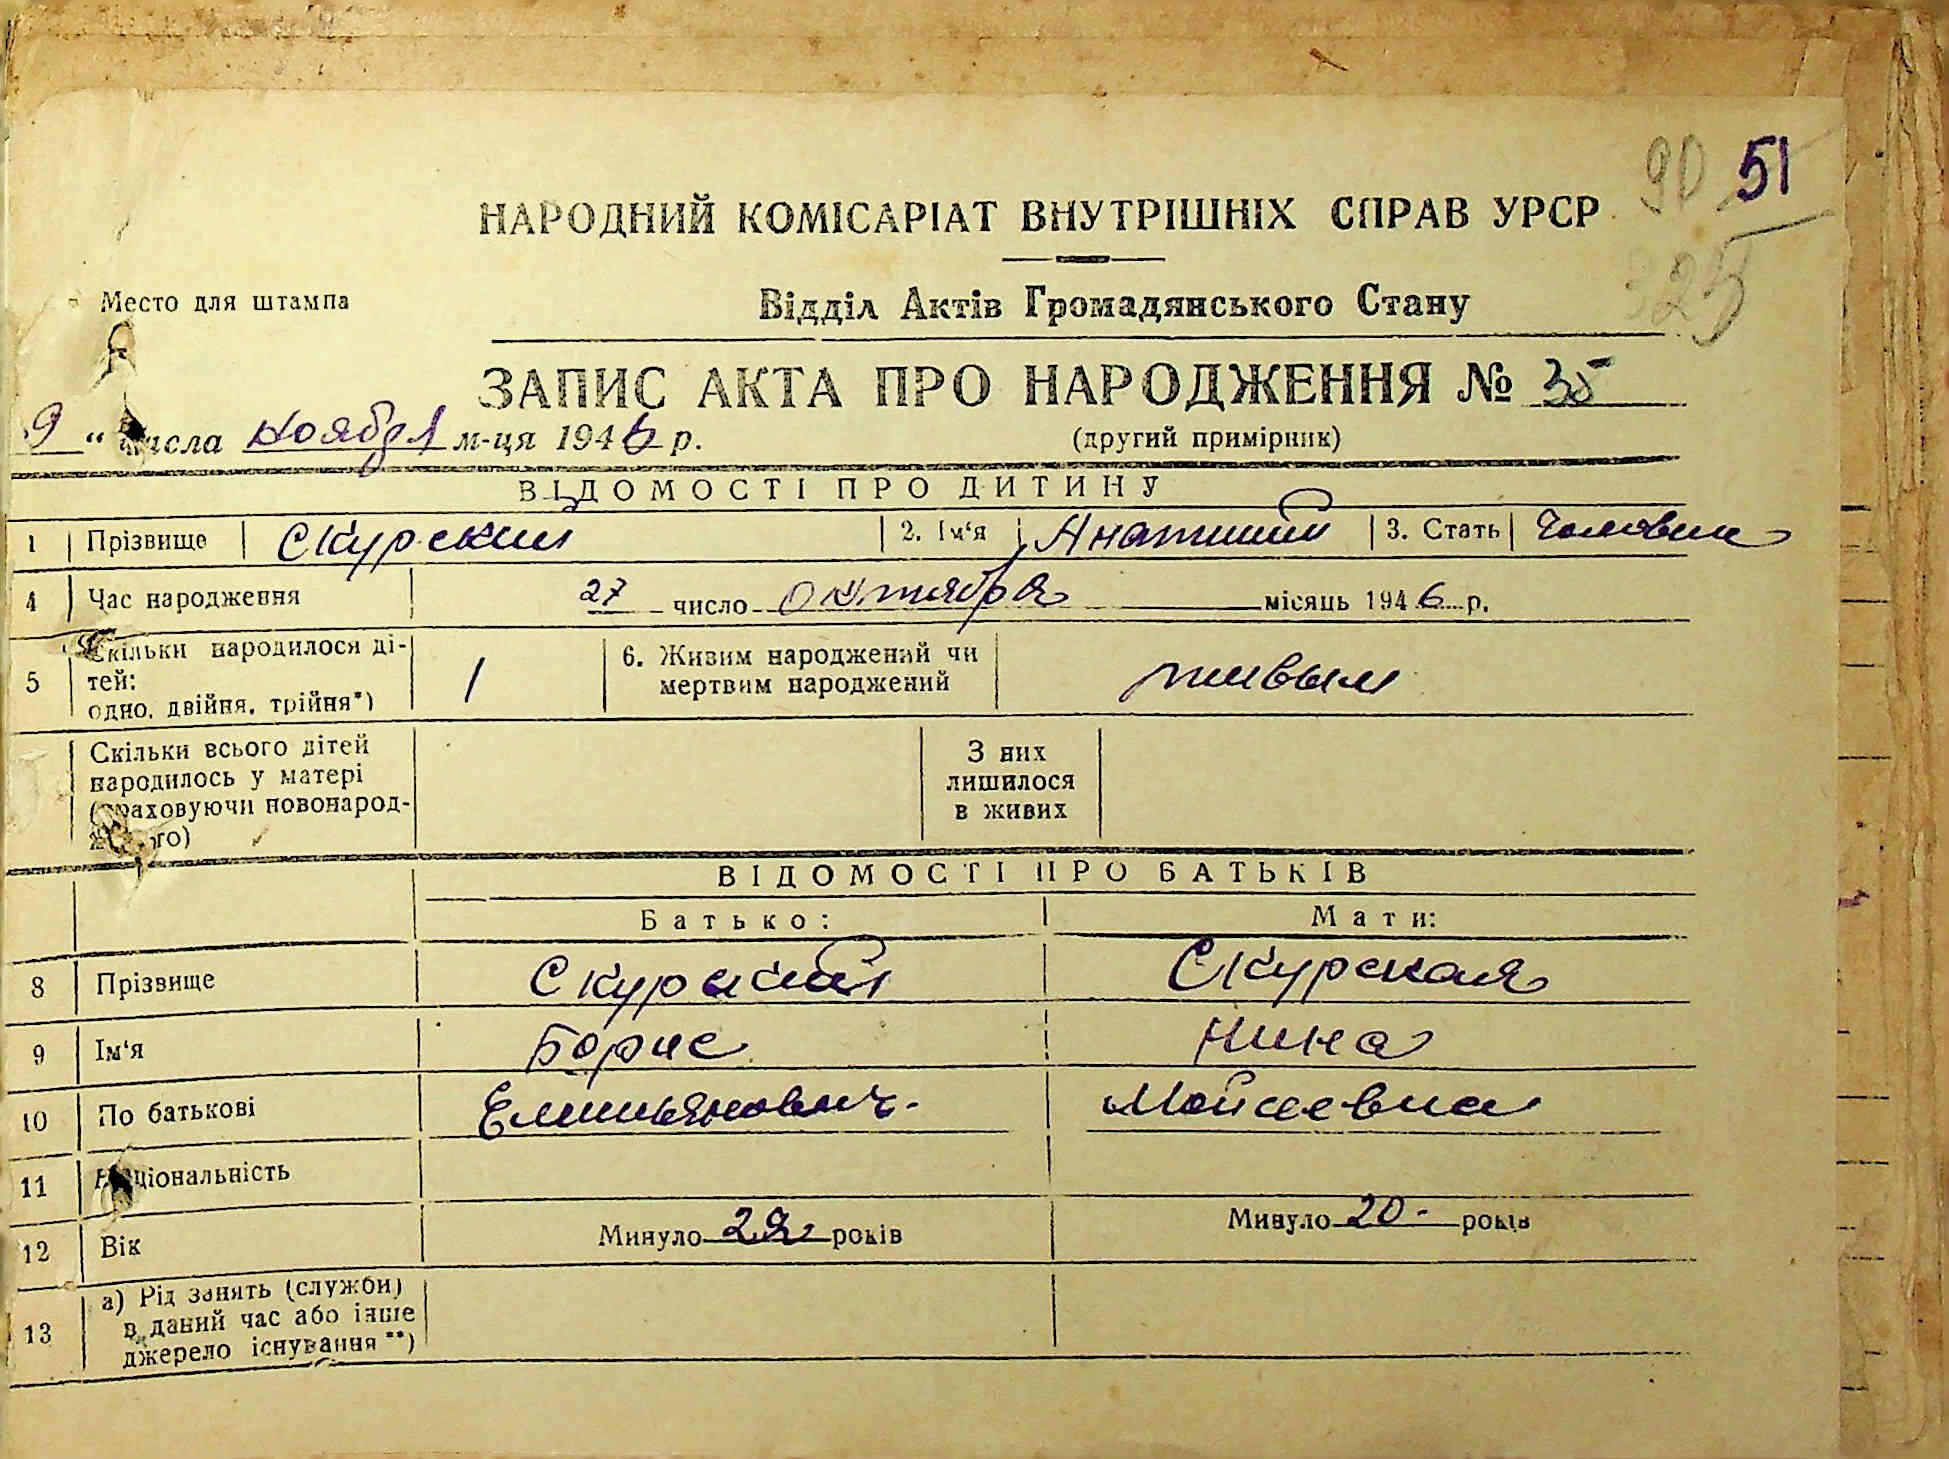 90 51
325
НАРОДНИЙ КОМІСАРІАТ ВНУТРІШНІХ СПРАВ УРСР
Место для штампа
Відділ Актів Громадянського Стану
ЗАПИС АКТА ПРО НАРОДЖЕННЯ № 35
9 " числа ноября м-ця 1946 р.
(другий примірник)
ВІДОМОСТІ ПРО ДИТИНУ
1 Прізвище Скурский 2. Ім'я Анатолий 3. Стать
4 Час народження 27 число октября місяць 1946 р.
5 Скільки народилося ді-
тей:
одно, двійня, трійня*) 1
6. Живим народжений чи
мертвим народжений живым
Скільки всього дітей
народилось у матері
(враховуючи новонарод-
женого)
З них
лишилося
в живих
ВІДОМОСТІ ПРО БАТЬКІВ
Батько: Мати:
8 Прізвище Скурский Скурская
9 Ім'я Борис Нина
10 По батькові Емильянович. Мойсеевна
11 Національність
12 Вік Минуло років Минуло 20 - років
13 а) Рід занять (служби)
в даний час або інше
джерело існування **)